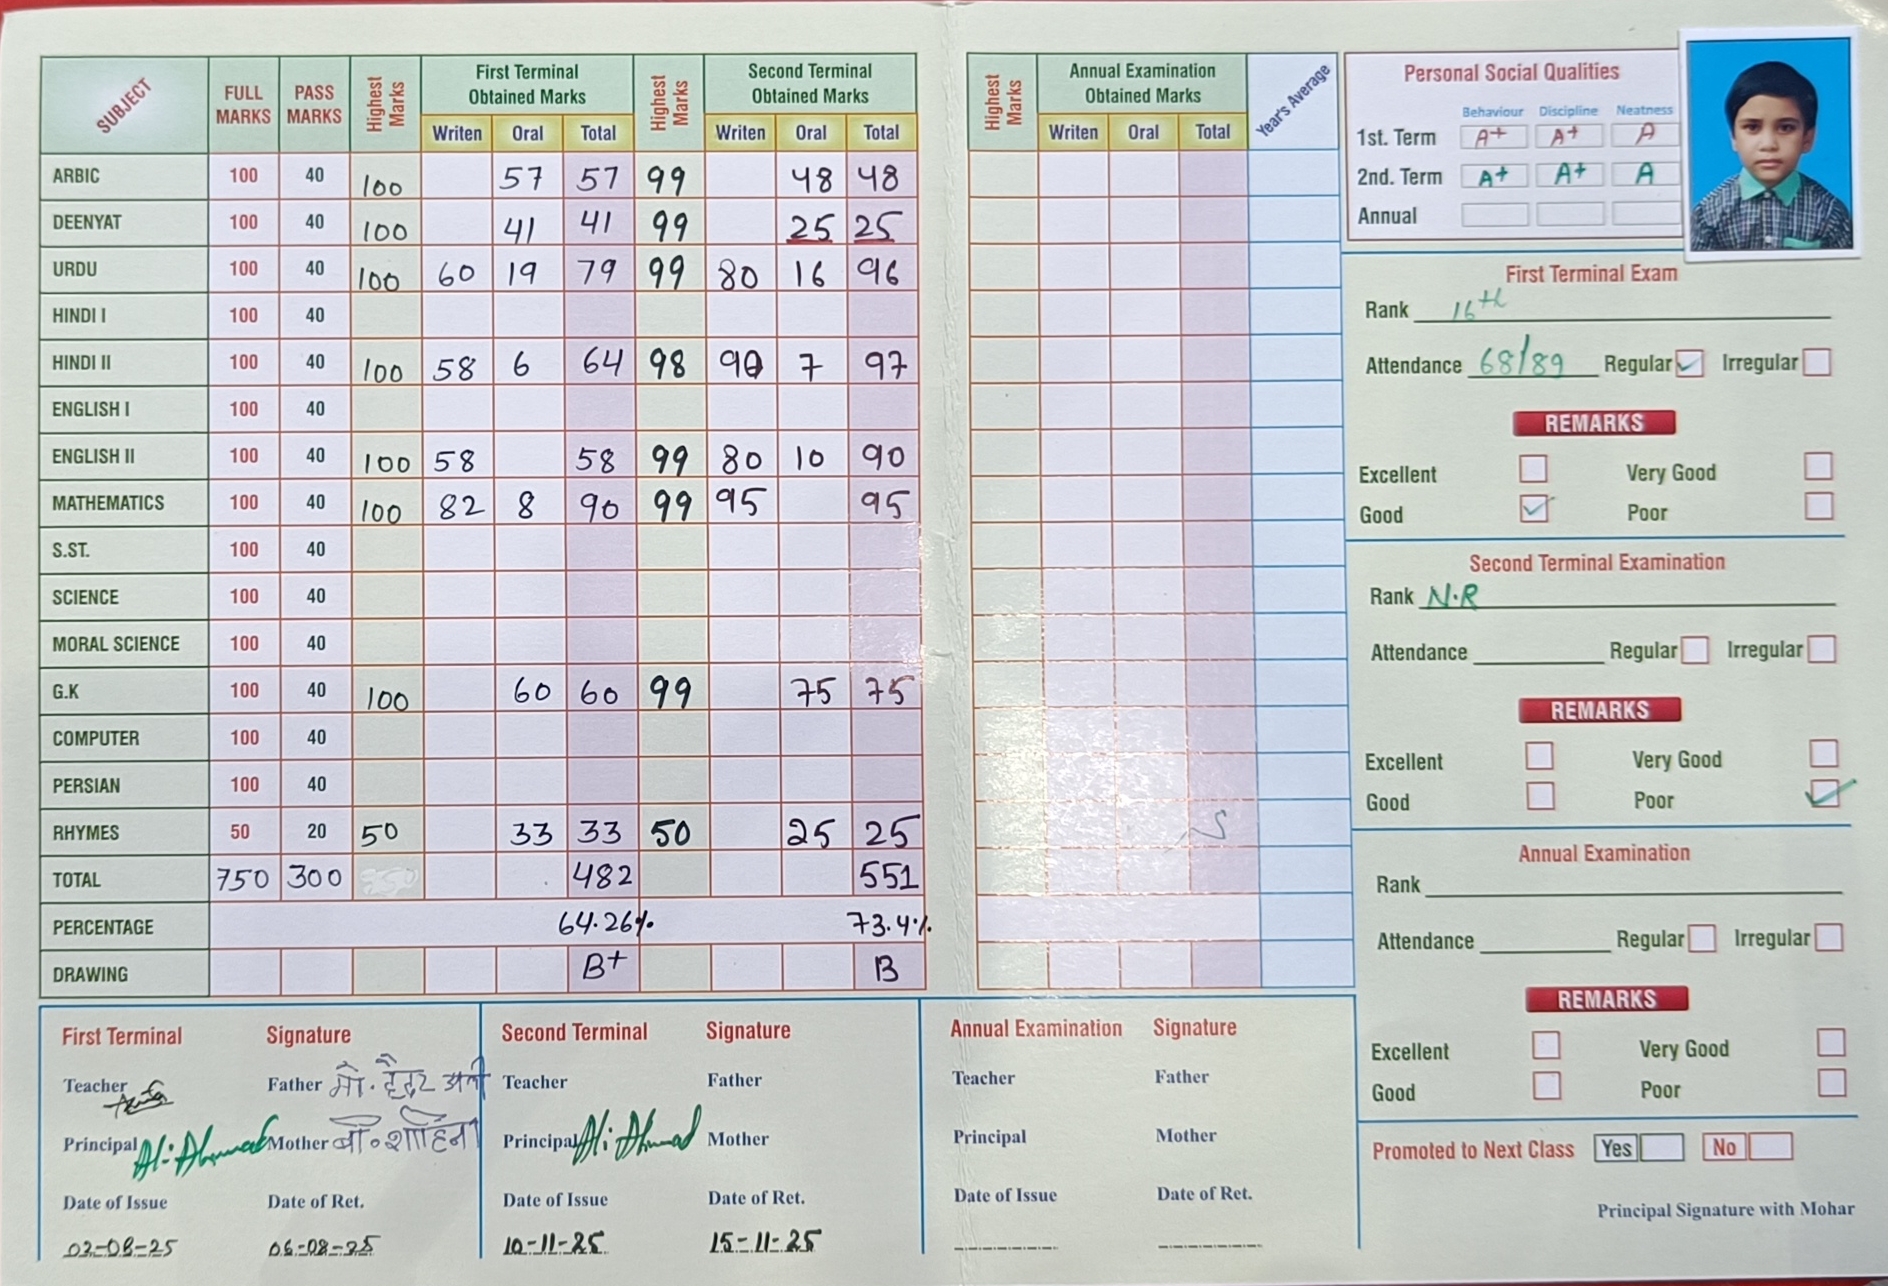 SUBJECT FULL MARKS PASS MARKS Highest Marks First Terminal Obtained Marks Highest Marks Second Terminal Obtained Marks
Writen Oral Total Writen Oral Total
ARBIC 100 40 100 57 57 99 48 48
DEENYAT 100 40 100 41 41 99 25 25
URDU 100 40 100 60 19 79 99 80 16 96
HINDI I 100 40
HINDI II 100 40 100 58 6 64 98 90 7 97
ENGLISH I 100 40
ENGLISH II 100 40 100 58 58 99 80 10 90
MATHEMATICS 100 40 100 82 8 90 99 95 95
S.ST. 100 40
SCIENCE 100 40
MORAL SCIENCE 100 40
G.K 100 40 100 60 60 99 75 75
COMPUTER 100 40
PERSIAN 100 40
RHYMES 50 20 50 33 33 50 25 25
TOTAL 750 300 482 551
PERCENTAGE 64.26% 73.4%
DRAWING B+ B
First Terminal Signature
Teacher Father मो. हैदर अली
Principal Ali Ahmad Mother
Date of Issue Date of Ret.
02-08-25 06-08-25
Second Terminal Signature
Teacher Father
Principal Ali Ahmad Mother
Date of Issue Date of Ret.
10-11-25 15-11-25
Highest Marks Annual Examination Obtained Marks Year's Average
Writen Oral Total
Annual Examination Signature
Teacher Father
Principal Mother
Date of Issue Date of Ret.
Personal Social Qualities
Behaviour Discipline Neatness
1st. Term A+ A+ A
2nd. Term A+ A+ A
Annual
First Terminal Exam
Rank 16th
Attendance 68/89 Regular Irregular
REMARKS
Excellent Very Good
Good Poor
Second Terminal Examination
Rank N.R
Attendance Regular Irregular
REMARKS
Excellent Very Good
Good Poor
Annual Examination
Rank
Attendance Regular Irregular
REMARKS
Excellent Very Good
Good Poor
Promoted to Next Class Yes No
Principal Signature with Mohar